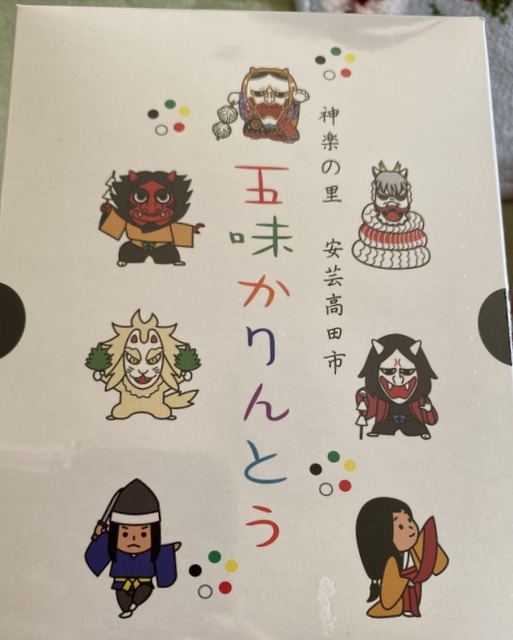 神楽の里　安芸高田市
五味かりんとう